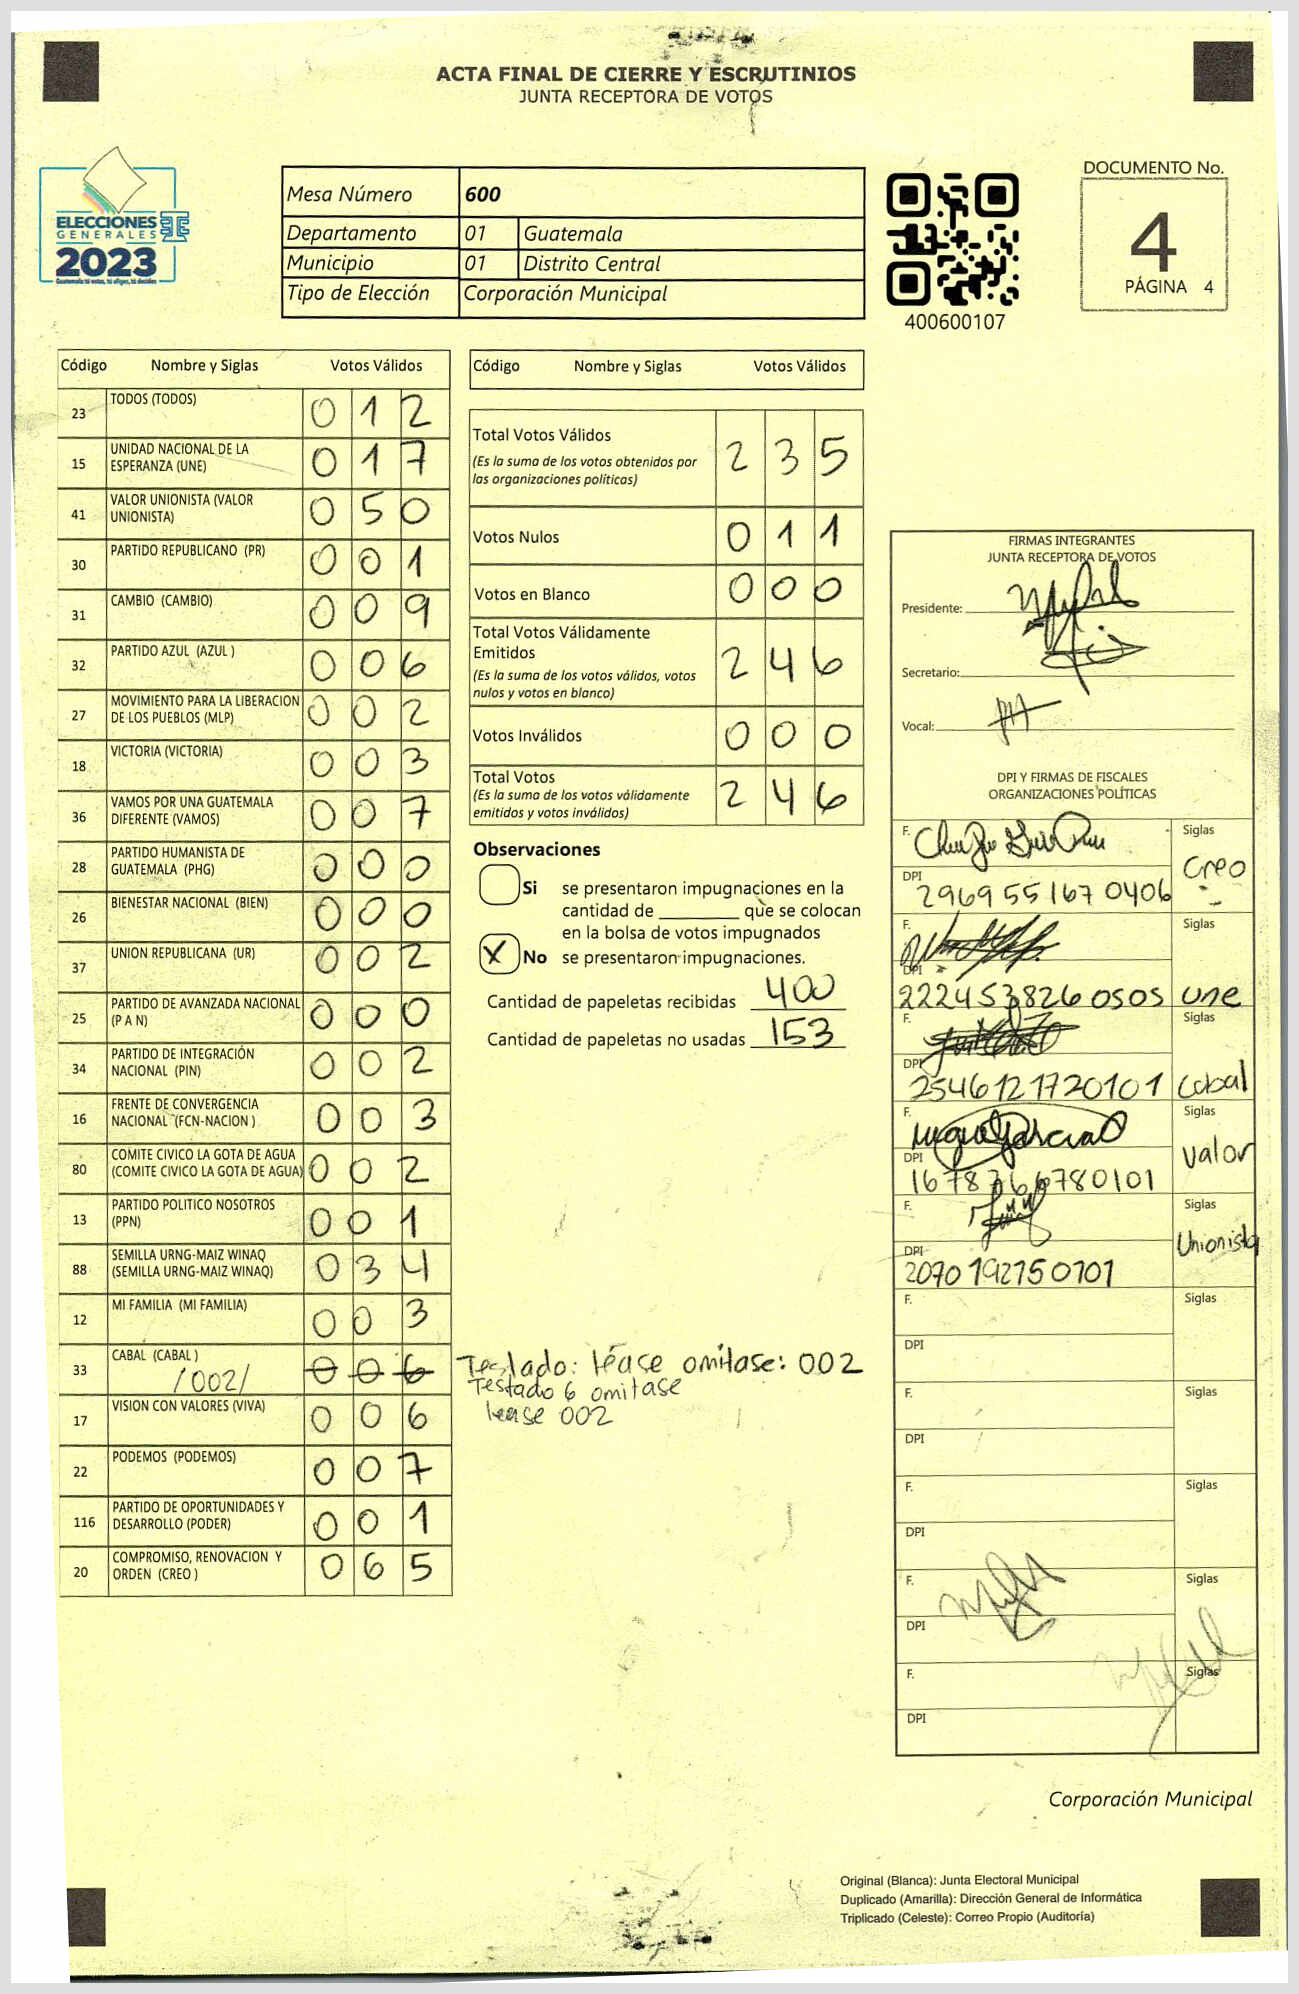 ACTA FINAL DE CIERRE Y ESCRUTINIOS
JUNTA RECEPTORA DE VOTOS
ELECCIONES
GENERALES
2023
Guatemala tú votas, tú eliges, tú decides
Mesa Número 600
Departamento 01 Guatemala
Municipio 01 Distrito Central
Tipo de Elección Corporación Municipal
400600107
DOCUMENTO No.
4
PÁGINA 4
Código Nombre y Siglas Votos Válidos
23 TODOS (TODOS) 0 1 2
15 UNIDAD NACIONAL DE LA
ESPERANZA (UNE) 0 1 7
41 VALOR UNIONISTA (VALOR
UNIONISTA) 0 5 0
30 PARTIDO REPUBLICANO (PR) 0 0 1
31 CAMBIO (CAMBIO) 0 0 9
32 PARTIDO AZUL (AZUL ) 0 0 6
27 MOVIMIENTO PARA LA LIBERACION
DE LOS PUEBLOS (MLP) 0 0 2
18 VICTORIA (VICTORIA) 0 0 3
36 VAMOS POR UNA GUATEMALA
DIFERENTE (VAMOS) 0 0 7
28 PARTIDO HUMANISTA DE
GUATEMALA (PHG) 0 0 0
26 BIENESTAR NACIONAL (BIEN) 0 0 0
37 UNION REPUBLICANA (UR) 0 0 2
25 PARTIDO DE AVANZADA NACIONAL
(P A N) 0 0 0
34 PARTIDO DE INTEGRACIÓN
NACIONAL (PIN) 0 0 2
16 FRENTE DE CONVERGENCIA
NACIONAL (FCN-NACION ) 0 0 3
80 COMITE CIVICO LA GOTA DE AGUA
(COMITE CIVICO LA GOTA DE AGUA) 0 0 2
13 PARTIDO POLITICO NOSOTROS
(PPN) 0 0 1
88 SEMILLA URNG-MAIZ WINAQ
(SEMILLA URNG-MAIZ WINAQ) 0 3 4
12 MI FAMILIA (MI FAMILIA) 0 0 3
33 CABAL (CABAL ) 0 0 6
/002/
17 VISION CON VALORES (VIVA) 0 0 6
22 PODEMOS (PODEMOS) 0 0 7
116 PARTIDO DE OPORTUNIDADES Y
DESARROLLO (PODER) 0 0 1
20 COMPROMISO, RENOVACION Y
ORDEN (CREO ) 0 6 5
Código Nombre y Siglas Votos Válidos
Total Votos Válidos 2 3 5
(Es la suma de los votos obtenidos por
las organizaciones políticas)
Votos Nulos 0 1 1
Votos en Blanco 0 0 0
Total Votos Válidamente
Emitidos 2 4 6
(Es la suma de los votos válidos, votos
nulos y votos en blanco)
Votos Inválidos 0 0 0
Total Votos 2 4 6
(Es la suma de los votos válidamente
emitidos y votos inválidos)
Observaciones
Si se presentaron impugnaciones en la
cantidad de ________ que se colocan
en la bolsa de votos impugnados
X No se presentaron impugnaciones.
Cantidad de papeletas recibidas 400
Cantidad de papeletas no usadas 153
Teslado: léase omitase: 002
Testado 6 omitase
lease 002
FIRMAS INTEGRANTES
JUNTA RECEPTORA DE VOTOS
Presidente:
Secretario:
Vocal:
DPI Y FIRMAS DE FISCALES
ORGANIZACIONES POLÍTICAS
F. Siglas
Creo
DPI
2969 55167 0406
F. Siglas
DPI
222453826 0505 une
F. Siglas
DPI
2546121720101 Cabal
F. Siglas
valor
DPI
F. Siglas
Unionista
DPI
F. Siglas
DPI
F. Siglas
DPI
F. Siglas
DPI
F. Siglas
DPI
F. Siglas
DPI
Corporación Municipal
Original (Blanca): Junta Electoral Municipal
Duplicado (Amarilla): Dirección General de Informática
Triplicado (Celeste): Correo Propio (Auditoría)